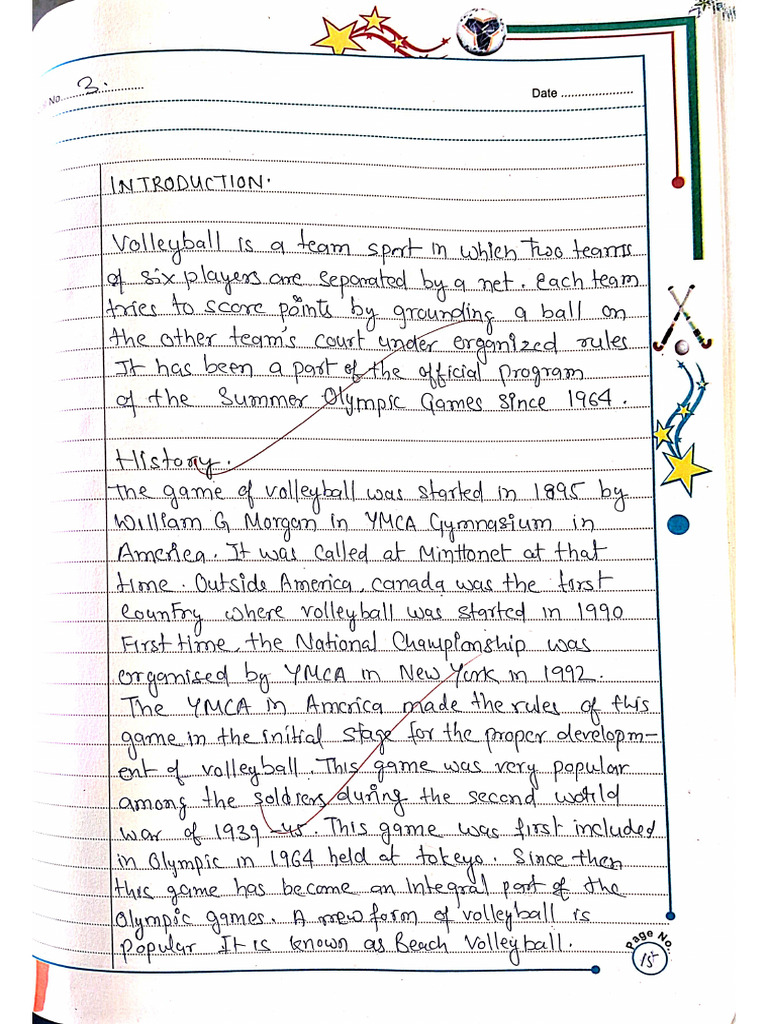 No. 3.
Date
INTRODUCTION.
Volleyball is a team sport in which Two teams
of six players are separated by a net. Each team
tries to score points by grounding a ball on
the other team's court under organized rules
It has been a part of the official program
of the Summer Olympic Games since 1964.
History.
The game of volleyball was started in 1895 by
William G Morgan in YMCA Gymnasium in
America. It was called at Minttonet at that
time. Outside America, Canada was the first
country where volleyball was started in 1990
First time, the National Championship was
organised by YMCA in New York in 1992.
The YMCA in America made the rules of this
game in the initial stage for the proper developm-
ent of volleyball. This game was very popular
among the soldiers during the second world
war of 1939-45. This game was first included
in Olympic in 1964 held at tokeyo. Since then
this game has become an integral part of the
Olympic games. A new form of volleyball is
popular It is known as Beach Volleyball.
Page No.
15